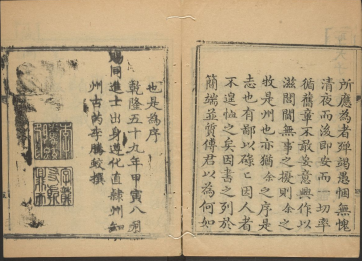 所應為者殫竭愚悃無愧
清夜而後即安而一切率
循舊章不敢妄意興作以
滋閭閻無事之擾則余之
牧是州也亦猶余之序是
志也若鄙以碌碌因人者
不遑恤之矣因書之列於
簡端並質傅君以為何如
也是為序
乾隆五十九年甲寅八月
賜同進士出身遵化直隸州知
州古芮李騰蛟撰